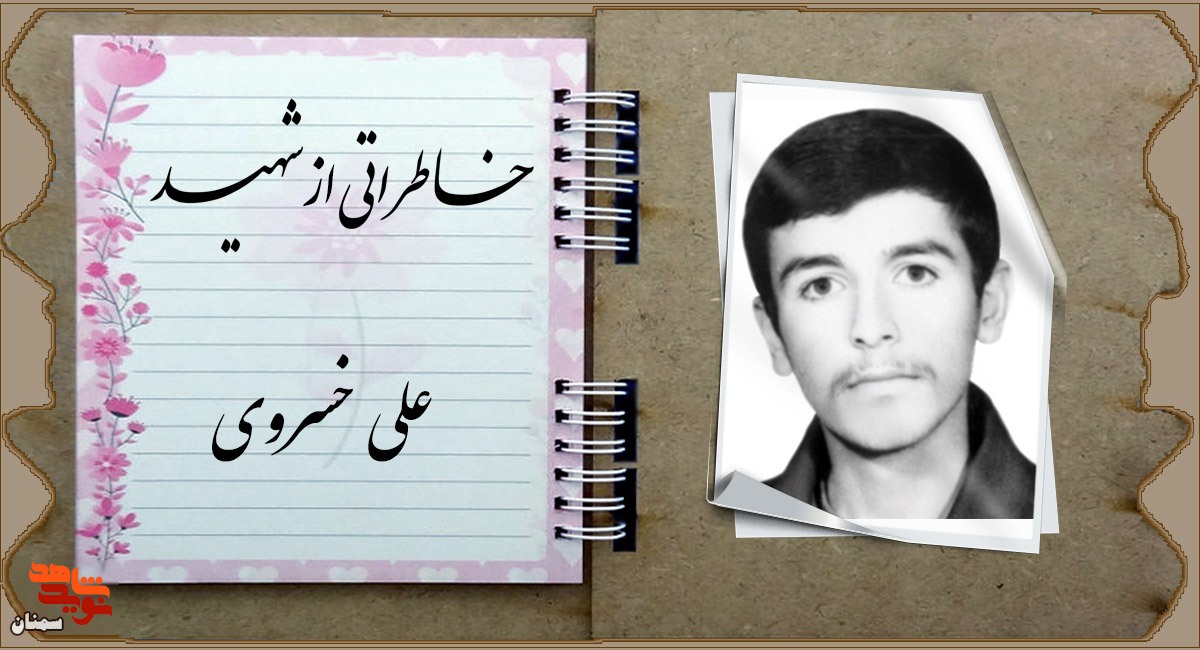 خاطراتی از شهید
علی خسروی
نوید شاهد
سمنان